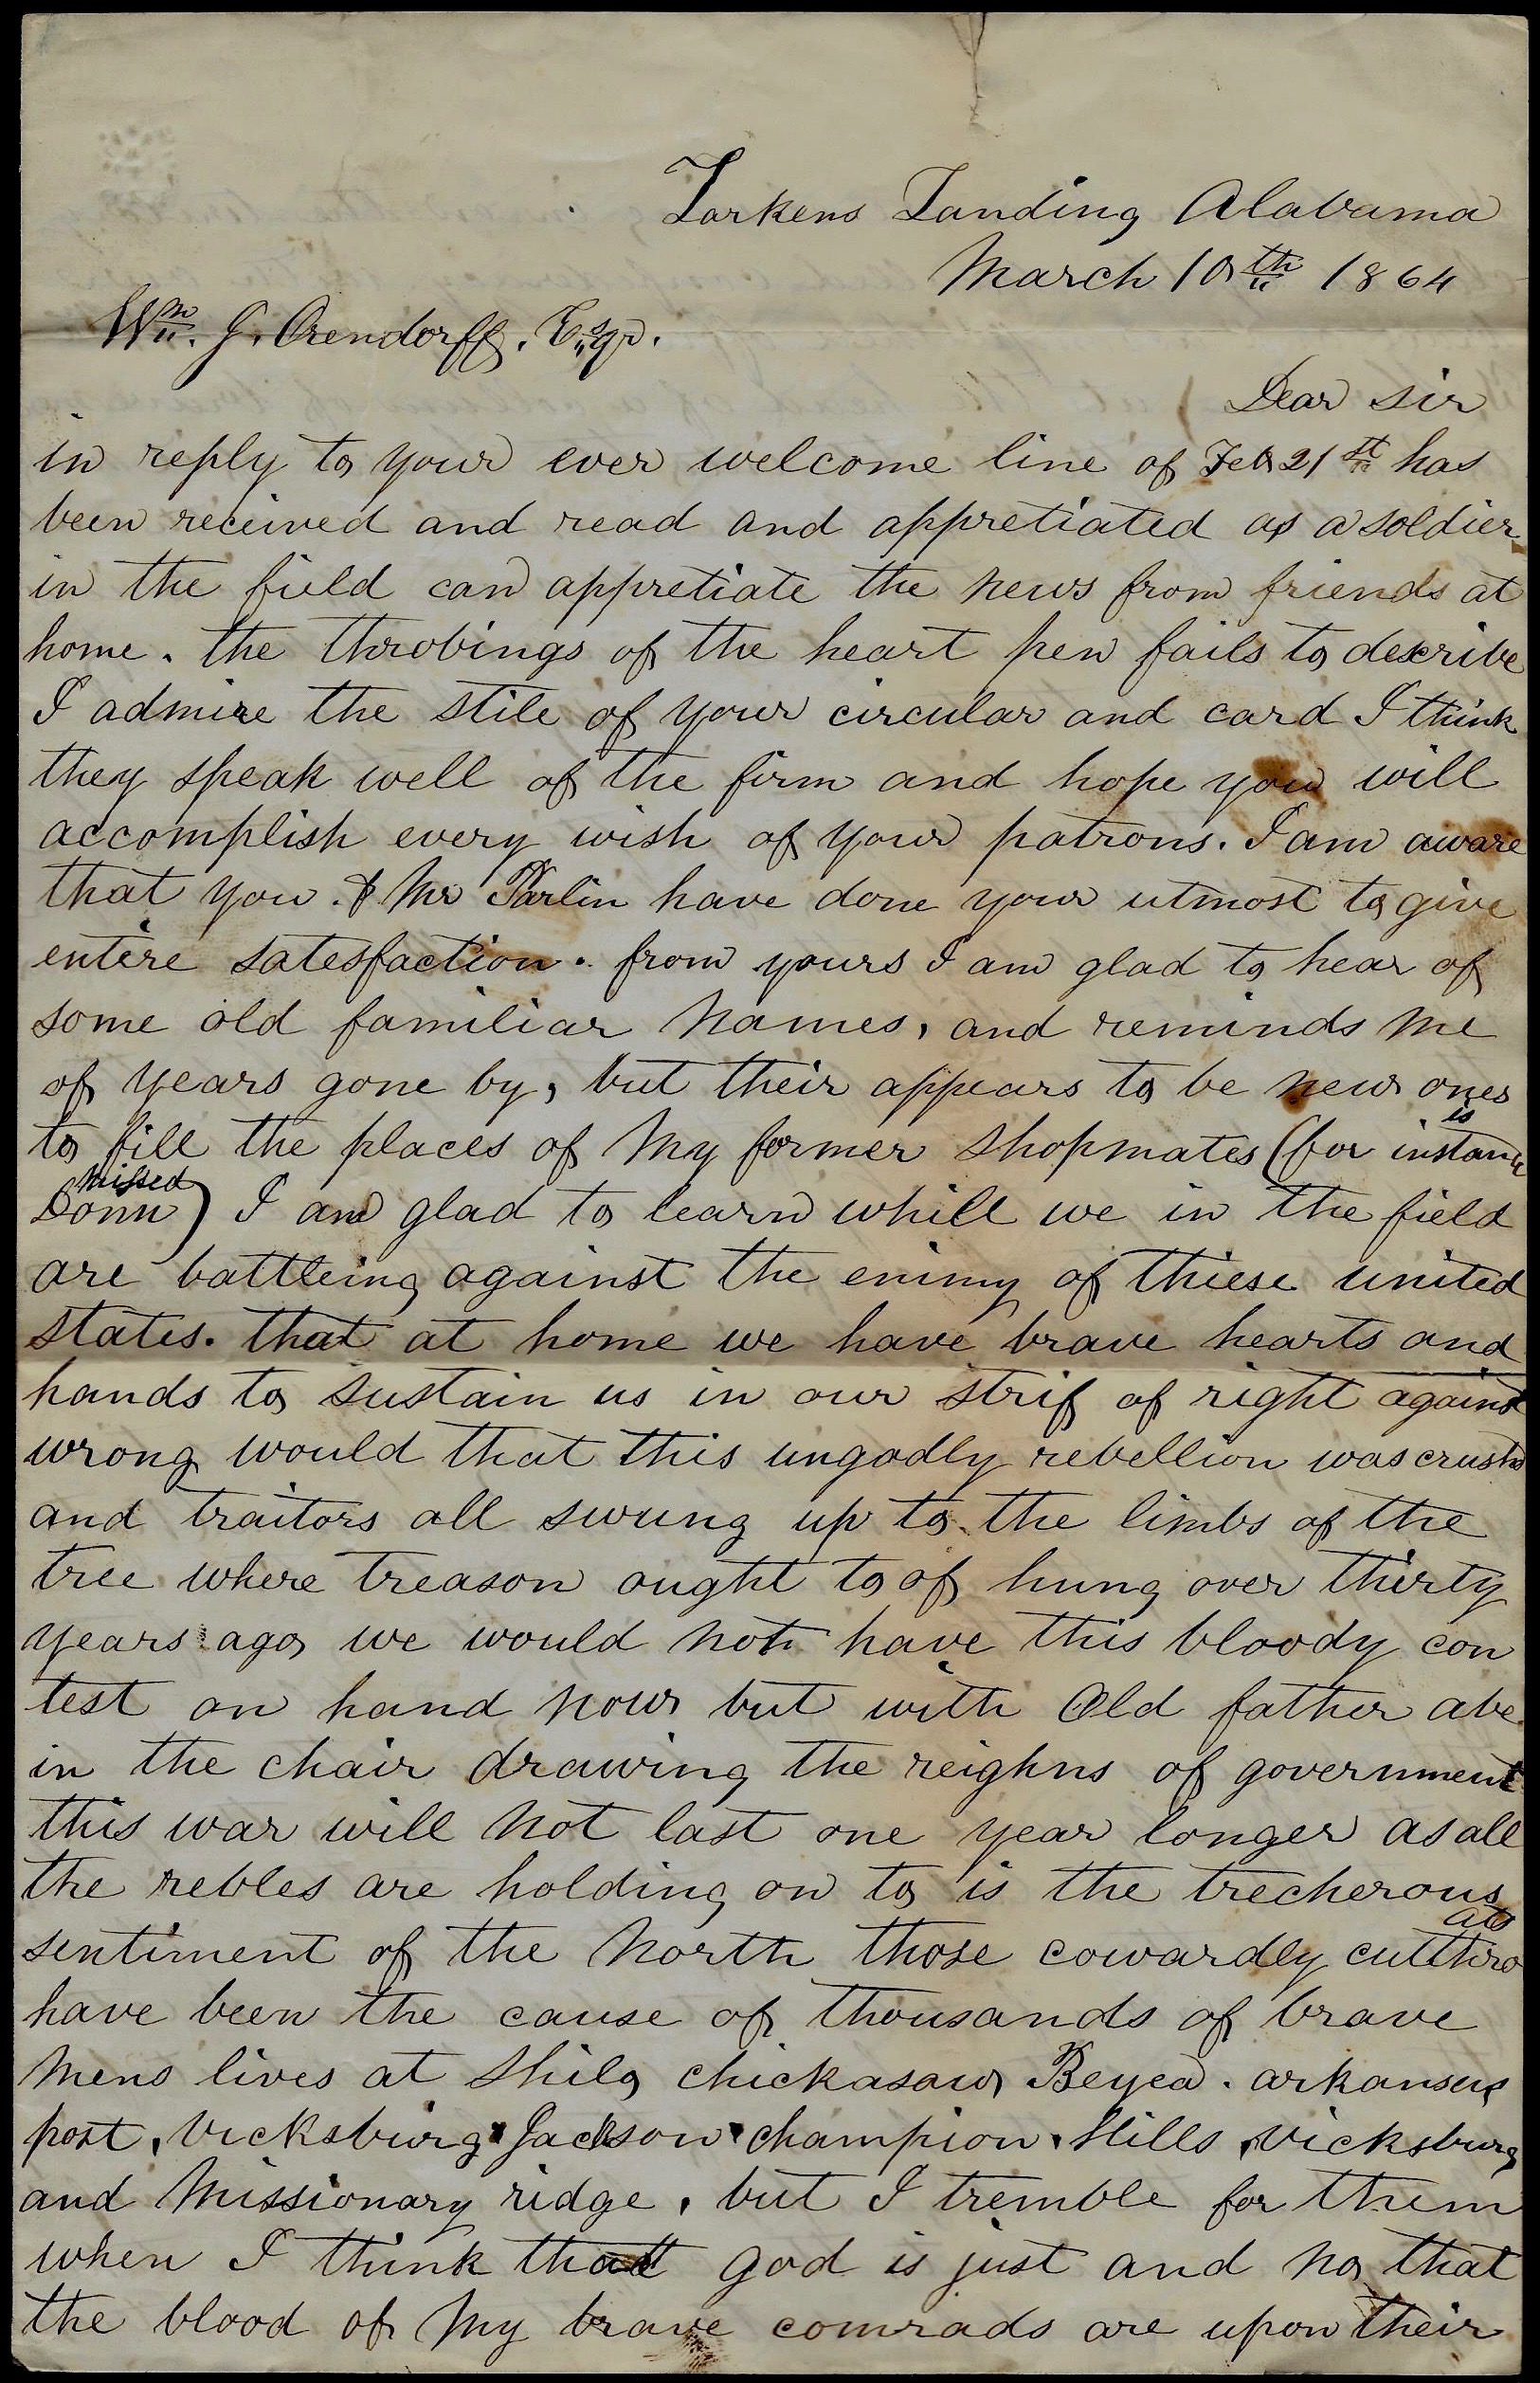 Larkens Landing Alabama
March 10th 1864
Wm. J. Orendorff. Esqr.
Dear sir
in reply to your ever welcome line of Feb 21st has
been recieved and read and appretiated as a soldier
in the field can appretiate the news from friends at
home. the throbings of the heart pen fails to describe
I admire the stile of your circular and card I think
they speak well of the firm and hope you will
accomplish every wish of your patrons. I am aware
that you. & Mr Parlin have done your utmost to give
entire satesfaction. from yours I am glad to hear of
some old familiar names, and reminds me
of years gone by, but their appears to be new ones
is
to fill the places of my former shopmates (for instance
missed
Donn) I am glad to learn whill we in the field
are battleing against the enimy of thiese united
states. that at home we have brave hearts and
hands to sustain us in our strif of right against
wrong would that this ungodly rebellion was crushd
and traitors all swung up to the limbs of the
tree where treason ought to of hung over thirty
years ago, we would not have this bloody con
test on hand now but with Old father abe
in the chair drawing the reighns of government
this war will not last one year longer as all
the rebles are holding on to is the trecherous
ats
sentiment of the North those cowardly cutthro
have been the cause of thousands of brave
mens lives at Shilo, chickasaw Beyea. arkansus
post, Vicksburg Jackson champion Hills Vicksburg
and Missionary ridge, but I tremble for them
when I think that god is just and no, that
the blood of my brave comrads are upon their